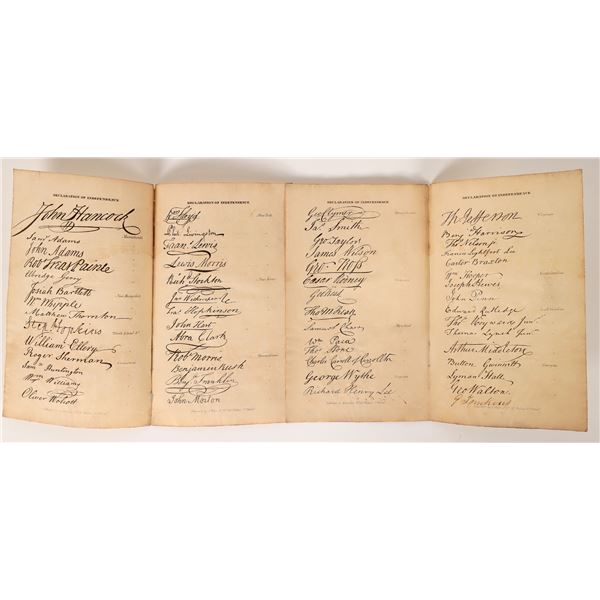 DECLARATION OF INDEPENDENCE
John Hancock
Massachusetts
Saml Adams
John Adams
Robt Treat Paine
Elbridge Gerry
Josiah Bartlett
New Hampshire
Wm Whipple
Matthew Thornton
Step Hopkins
Rhode Island &c
William Ellery
Roger Sherman
Connecticut
Saml Huntington
Wm Williams
Oliver Wolcott
DECLARATION OF INDEPENDENCE
Wm Floyd
New York
Phil. Livingston
Frans. Lewis
Lewis Morris
Richd Stockton
New Jersey
Jno Witherspoon
Fras Hopkinson
John Hart
Abra Clark
Robt Morris
Pennsylvania
Benjamin Rush
Benj Franklin
John Morton
DECLARATION OF INDEPENDENCE
Geo Clymer
Jas. Smith
Geo Taylor
James Wilson
Geo. Ross
Caesar Rodney
Delaware
Geo Read
Tho M:Kean
Samuel Chase
Maryland
Wm Paca
Thos Stone
Charles Carroll of Carrollton
George Wythe
Virginia
Richard Henry Lee
DECLARATION OF INDEPENDENCE
Th Jefferson
Virginia
Benj Harrison
Thos Nelson jr
Francis Lightfoot Lee
Carter Braxton
Wm Hooper
North Carolina
Joseph Hewes
John Penn
Edward Rutledge
South Carolina
Thos Heyward Junr
Thomas Lynch Junr
Arthur Middleton
Button Gwinnett
Georgia
Lyman Hall
Geo Walton